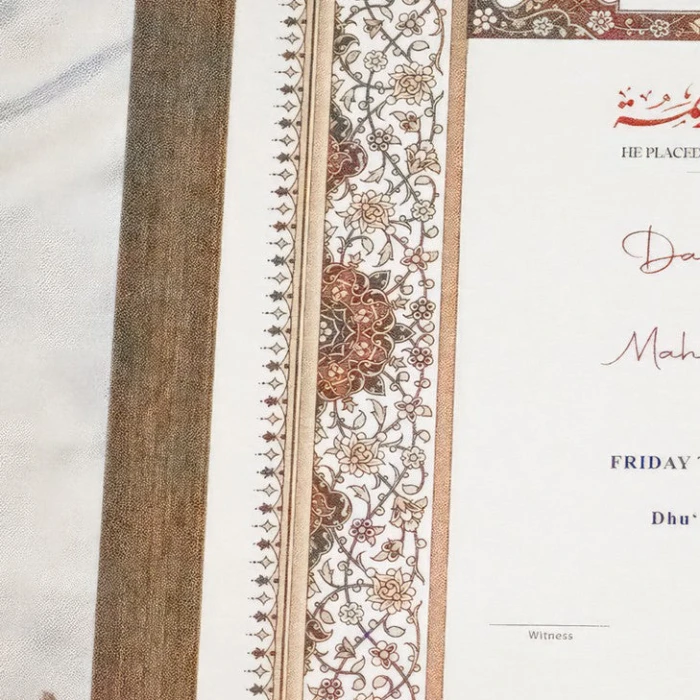 HE PLACED
Da
Mah
FRIDAY
Dhu‘
Witness